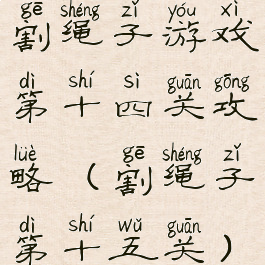 gē shéng zǐ yóu xì
割绳子游戏
dì shí sì guān gōng
第十四关攻
lüè gē shéng zǐ
略（割绳子
dì shí wǔ guān
第十五关）